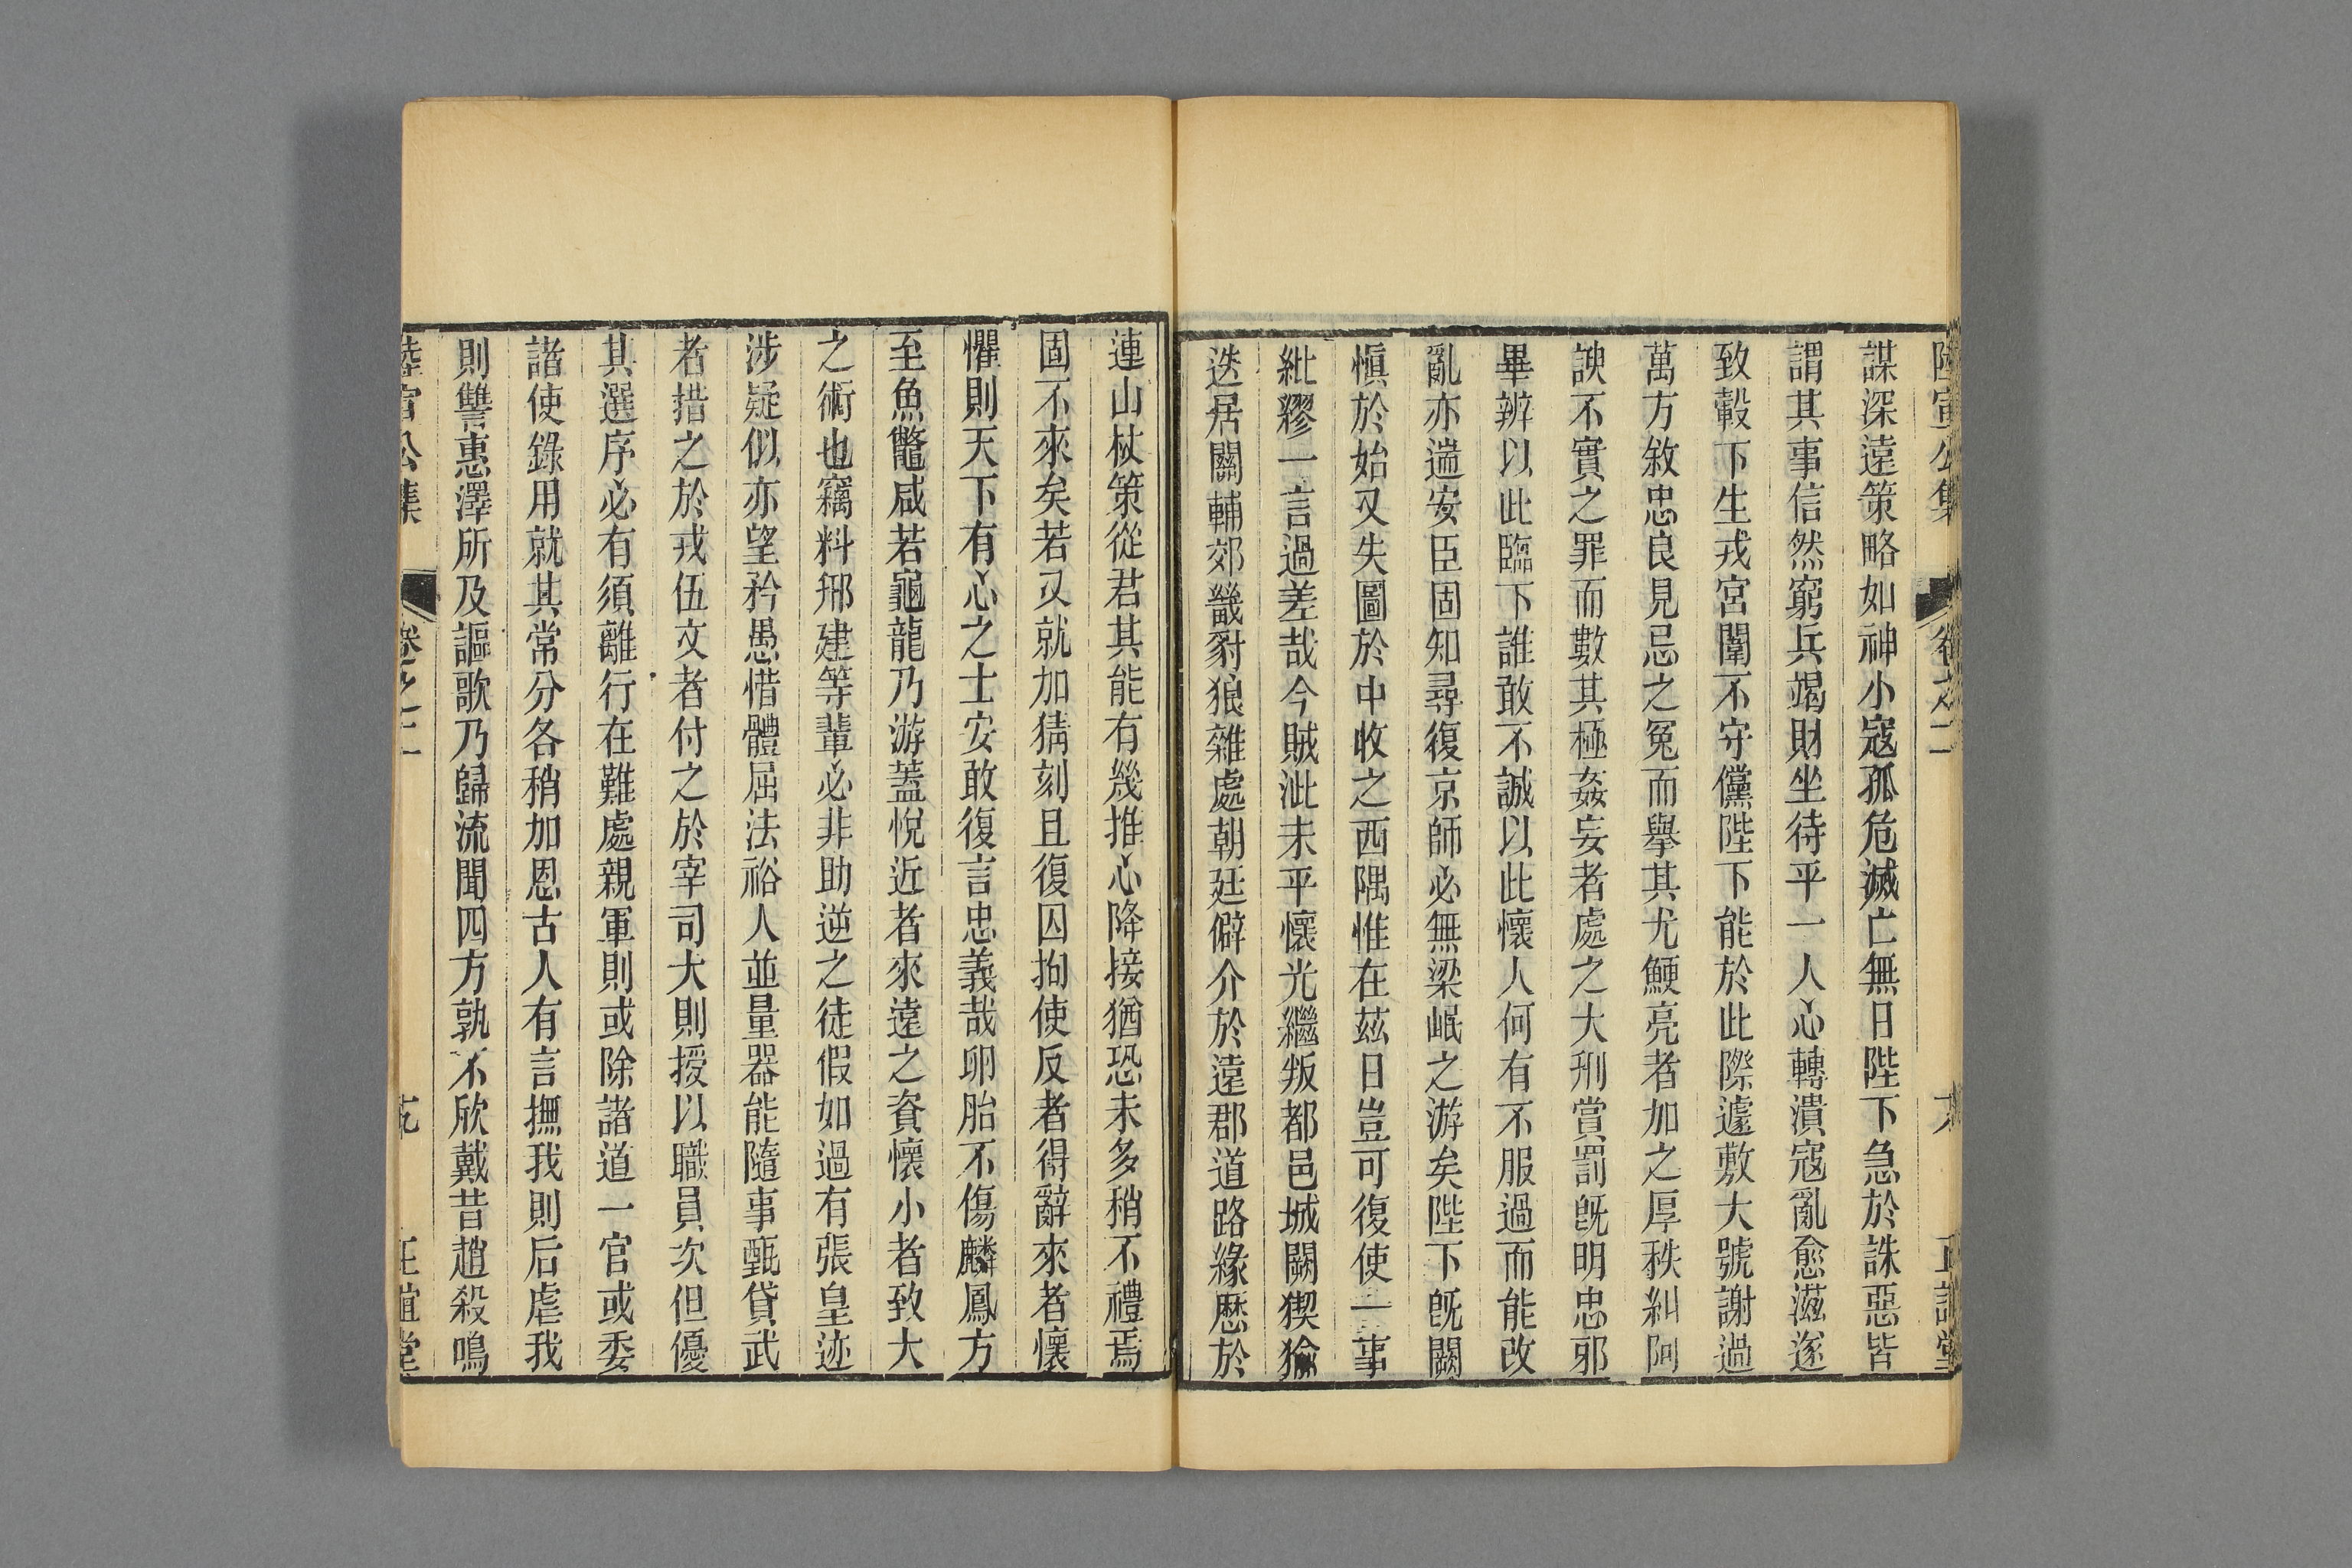 陸宣公集 卷之二 六 正誼堂
謀深遠策略如神小寇孤危滅亡無日陛下急於誅惡皆
謂其事信然窮兵竭財坐待平一人心轉潰寇亂愈滋遂
致轂下生戎宮闈不守儻陛下能於此際遽敷大號謝過
萬方敘忠良見忌之冤而舉其尤鯁亮者加之厚秩糾阿
諛不實之罪而數其極姦妄者處之大刑賞罰旣明忠邪
畢辨以此臨下誰敢不誠以此懷人何有不服過而能改
亂亦遄安臣固知尋復京師必無梁岷之游矣陛下旣闕
愼於始又失圖於中收之西隅惟在茲日豈可復使一事
紕繆一言過差哉今賊泚未平懷光繼叛都邑城闕猰㺄
迭居關輔郊畿豺狼雜處朝廷僻介於遠郡道路緣歷於
連山杖策從君其能有幾推心降接猶恐未多稍不禮焉
固不來矣若又就加猜刻且復囚拘使反者得辭來者懷
懼則天下有心之士安敢復言忠義哉卵胎不傷麟鳳方
至魚鼈咸若龜龍乃游蓋悅近者來遠之資懷小者致大
之術也竊料邢建等輩必非助逆之徒假如過有張皇迹
涉疑似亦望矜愚惜體屈法裕人並量器能隨事甄貸武
者措之於戎伍文者付之於宰司大則授以職員次但優
其選序必有須離行在難處親軍則或除諸道一官或委
諸使錄用就其常分各稍加恩古人有言撫我則后虐我
則讐惠澤所及謳歌乃歸流聞四方孰不欣戴昔趙殺鳴
陸宣公集 卷之二